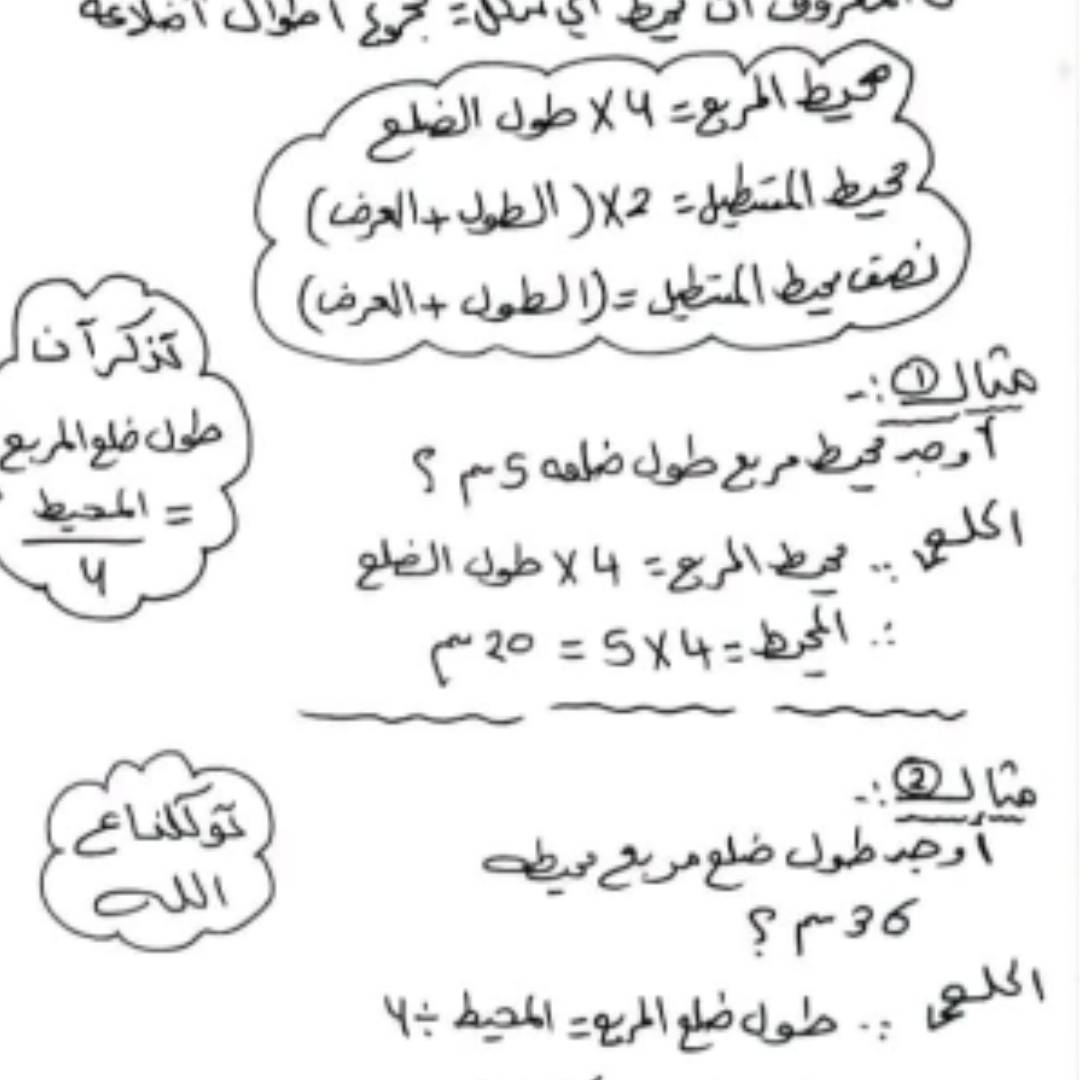 المعروف أن محيط أي شكل = مجموع أطوال أضلاعه
محيط المربع = 4 × طول الضلع
محيط المستطيل = 2 × (الطول + العرض)
نصف محيط المستطيل = (الطول + العرض)
تذكر أن
طول ضلع المربع
= المحيط
4
مثال ① :-
أوجد محيط مربع طول ضلعه 5 سم ؟
الحل
∵ محيط المربع = 4 × طول الضلع
∴ المحيط = 4 × 5 = 20 سم
مثال ② :-
أوجد طول ضلع مربع محيطه
36 سم ؟
توكلنا على
الله
الحل
∵ طول ضلع المربع = المحيط ÷ 4